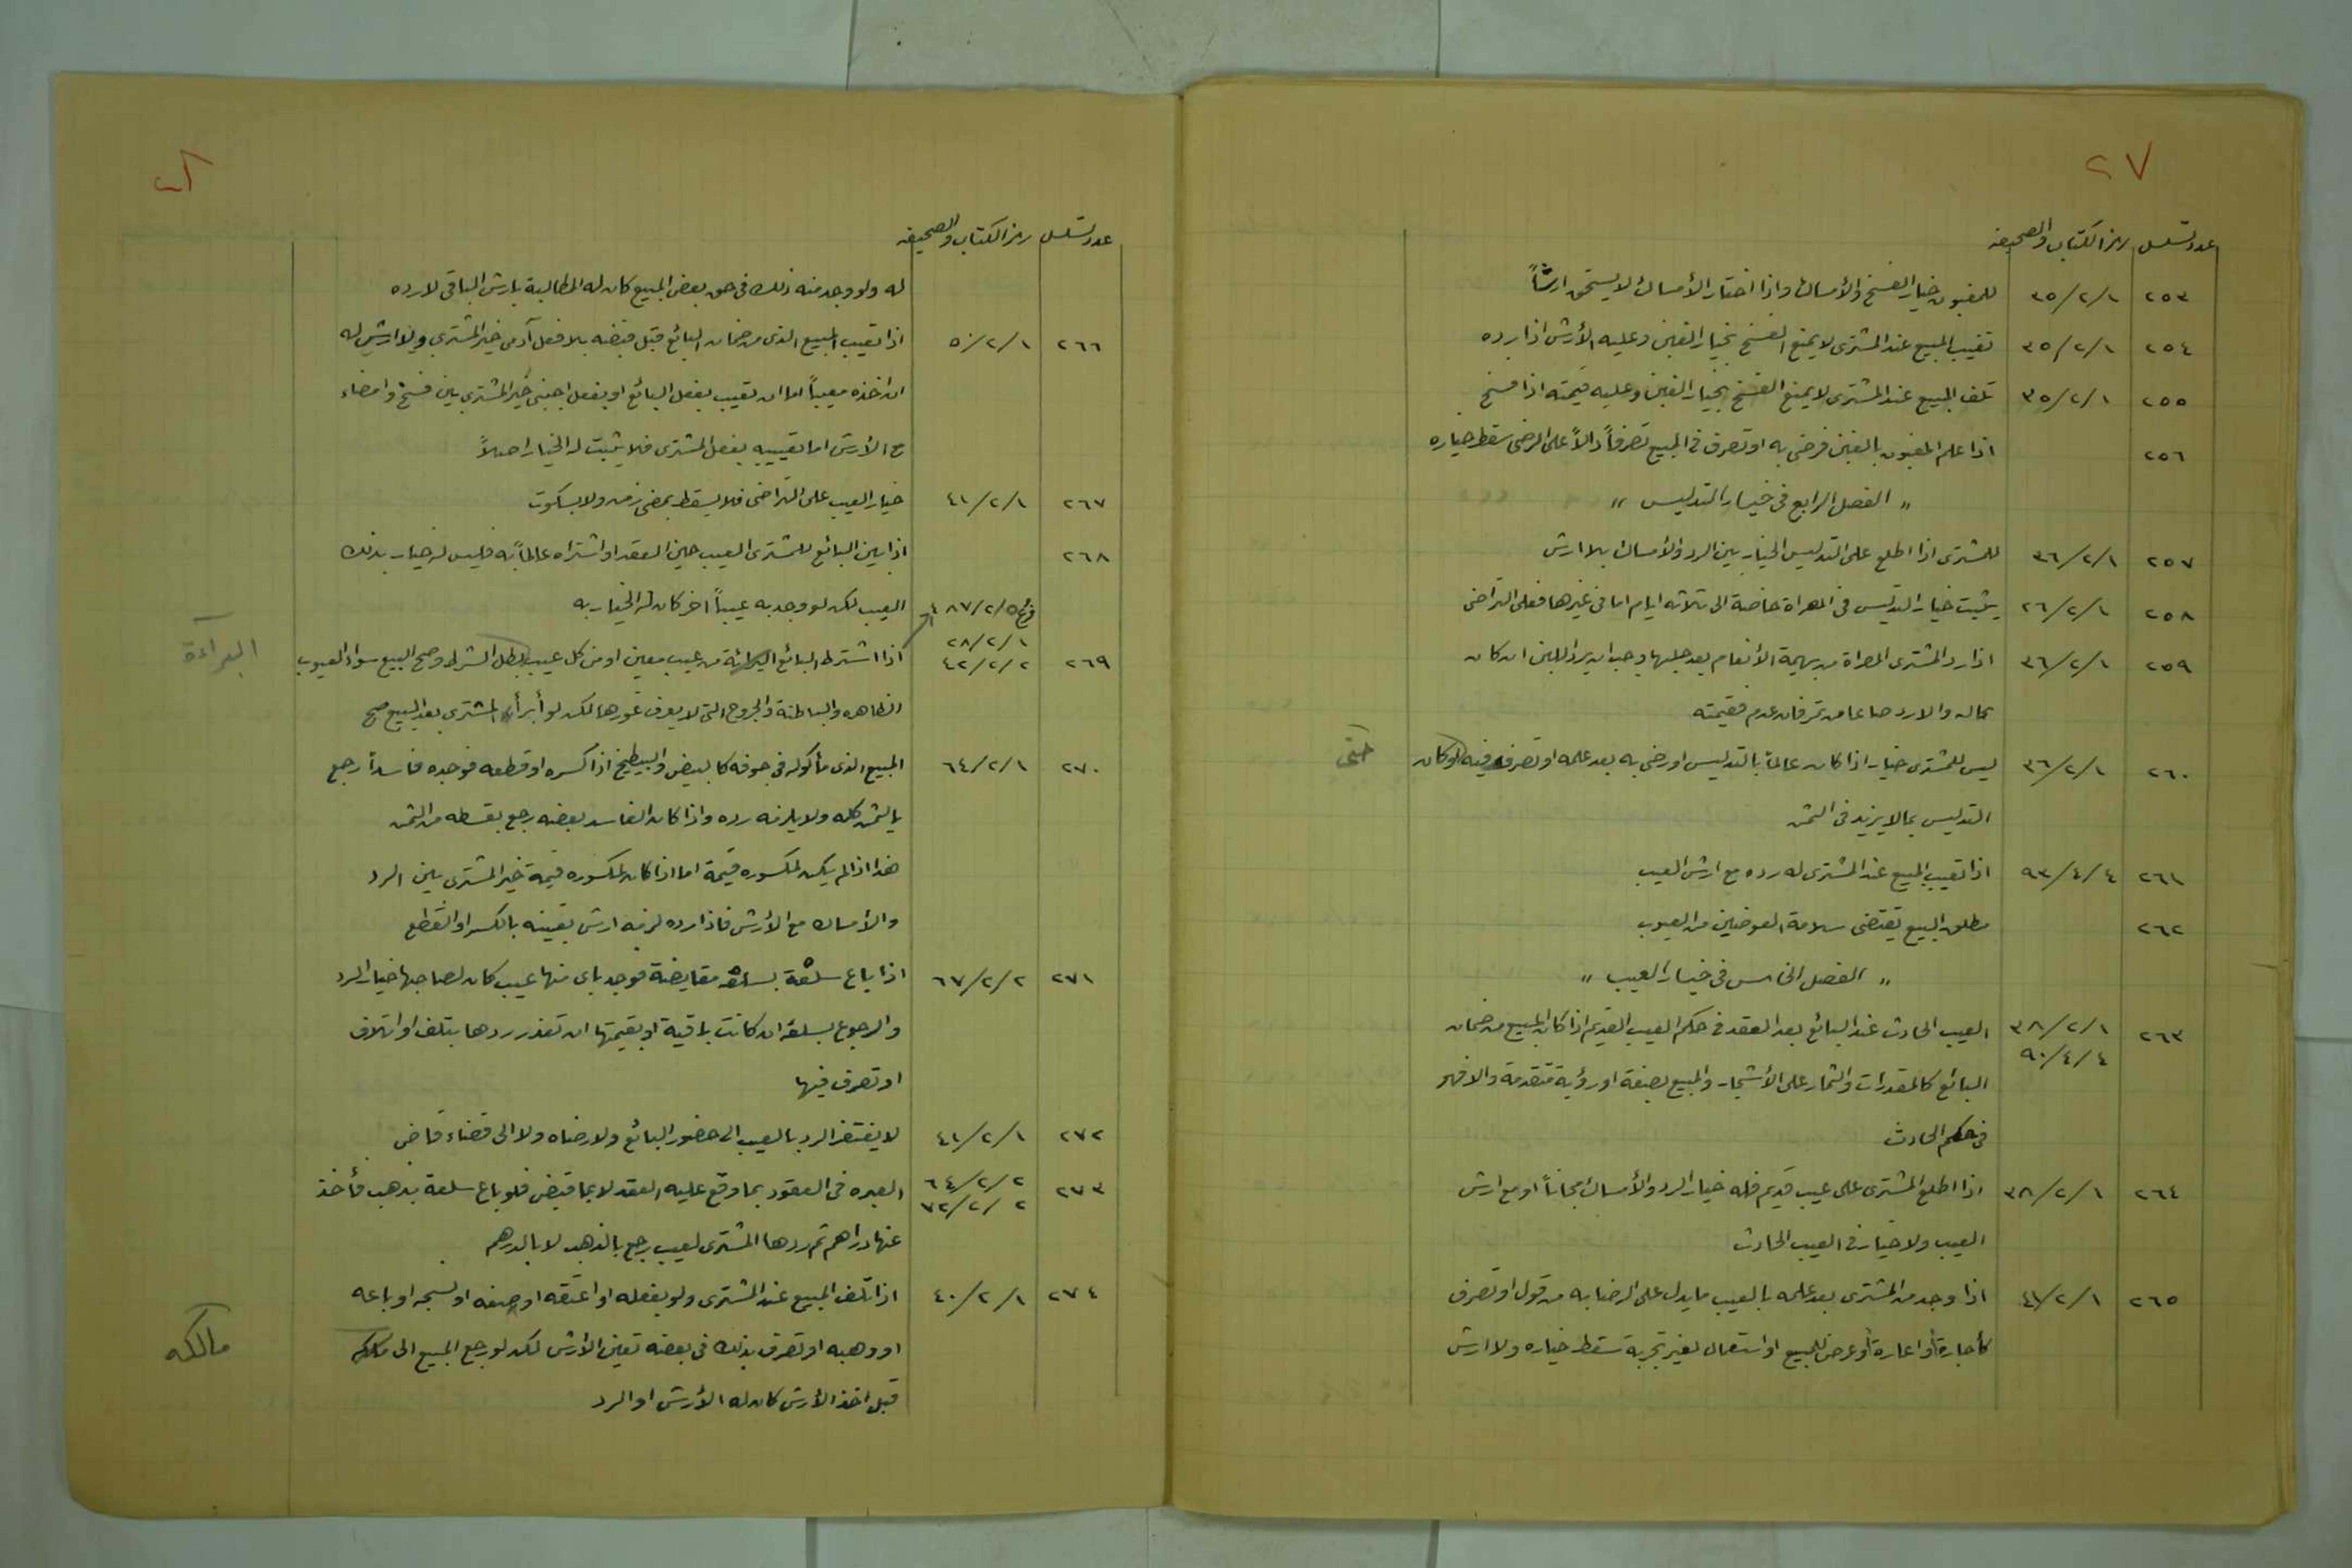 ٢٧
عدد تسلسل رمز الكتاب والصحيفه
٢٥٣ ٣٥/٢/١ للمغبون خيار الفسخ والأمساك واذا اختار الأمساك لا يستحق ارشاً
٢٥٤ ٣٥/٢/١ تعيب المبيع عند المشترى لا يمنع الفسخ بخيار الغبن وعليه الأرش اذا رده
٢٥٥ ٣٥/٢/١ تلف المبيع عند المشترى لا يمنع الفسخ بخيار الغبن وعليه قيمته اذا فسخ
٢٥٦ اذا علم المغبون بالغبن فرضى به او تصرف في المبيع تصرفاً دالاً على الرضى سقط خياره
" الفصل الرابع فى خيار التدليس "
٢٥٧ ٣٦/٢/١ للمشترى اذا اطلع على التدليس الخيار بين الرد والأمساك بلا ارش
٢٥٨ ٢٦/٢/١ يثبت خيار التدليس فى المصراة خاصة الى ثلاثه ايام اما فى غيرها فعلى التراخى
٢٥٩ ٣٦/٢/١ اذا رد المشترى المصراة من بهيمة الأنعام بعد حلبها وجب ان يرد اللبن ان كان
بحاله والا رد صاعا من تمر فان عدم فقيمته
٢٦٠ ٣٦/٢/١ ليس للمشترى خيار اذا كان عالماً بالتدليس او رضى به بعد علمه او تصرف فيه لو كان حتى
التدليس بما لا يزيد فى الثمن
٢٦١ ٩٣/٤/٤ اذا تعيب المبيع عند المشترى له رده مع ارش العيب
٢٦٢ مطلق البيع يقتضى سلامة العوضين من العيوب
" الفصل الخامس فى خيار العيب "
٢٦٣ ٣٨/٢/١ العيب الحادث عند البائع بعد العقد فى حكم العيب القديم اذا كان المبيع من ضمان
٩٠/٤/٤
البائع كالمقدرات والثمار على الأشجار والمبيع بصفة او رؤية متقدمة والا فهو
فى حكم الحادث
٢٦٤ ٣٨/٢/١ اذا اطلع المشترى على عيب قديم فله خيار الرد والأمساك مجاناً او مع ارش
العيب ولا خيار فى العيب الحادث
٢٦٥ ٤١/٢/١ اذا وجد من المشترى بعد علمه بالعيب ما يدل على الرضا به من قول او تصرف
كأجارة أو اعارة أو عرض للبيع او استعمال لغير تجربة سقط خياره ولا ارش
٢٨
عدد تسلسل رمز الكتاب والصحيفه
له ولو وجد منه ذلك فى حق بعض المبيع كان له المطالبة بارش الباقى لا رده
٢٦٦ ٥٠/٢/١ اذا تعيب المبيع الذى من ضمان البائع قبل قبضه بلا فعل آدمى خير المشترى ولا ارش له
ان اخذه معيباً اما ان تعيب بفعل البائع او بفعل اجنبى خير المشترى بين فسخ وامضاء
مع الأرش اما تعييبه بفعل المشترى فلا يثبت له الخيار اصلاً
٢٦٧ ٤١/٢/١ خيار العيب على التراخى فلا يسقط بمضى زمن ولا بسكوت
٢٦٨ اذا بين البائع للمشترى العيب حين العقد او اشتراه عالماً به فليس له خيار بذلك
العيب لكن لو وجد به عيباً اخر كان له الخيار به
٢٦٩ ٢٨/٢/١ ٤٢/٢/٢ اذا اشترط البائع البرائة من عيب معين او من كل عيب بطل الشرط وصح البيع سواء العيوب البراءة
الظاهره والباطنة والجروح التى لا يعرف غورها لكن لو أبرأه المشترى بعد البيع صح
٢٧٠ ٦٤/٢/١ المبيع الذى مأكوله فى جوفه كالبيض والبطيخ اذا كسره او قطعه فوجده فاسداً رجع
بالثمن كله ولا يلزمه رده واذا كان الفاسد بعضه رجع بقسطه من الثمن
هذا اذا لم يكن لمكسوره قيمة اما اذا كان لمكسوره قيمة خير المشترى بين الرد
والأمساك مع الأرش فاذا رده لزمه ارش تعيبه بالكسر او القطع
٢٧١ ٦٧/٢/٢ اذا باع سلعة بسلعة مقايضة فوجد باى منها عيب كان لصاحبها خيار الرد
والرجوع بسلعته ان كانت باقية او بقيمتها ان تعذر ردها بتلف او اتلاف
او تصرف فيها
٢٧٢ ٤١/٢/١ لا يفتقر الرد بالعيب الى حضور البائع ولا رضاه ولا الى قضاء قاض
٢٧٣ ٦٤/٢/٢ ٧٢/٢/٢ العبره فى العقود بما وقع عليه العقد لا بما قبض فلو باع سلعة بذهب فأخذ
عنها دراهم ثم ردها المشترى لعيب رجع بالذهب لا بالدرهم
٢٧٤ ٤٠/٢/١ اذا تلف المبيع عند المشترى ولو بفعله او اعتقه او صبغه او نسجه او باعه
او وهبه او تصرف بذلك فى بعضه تعين الأرش لكن لو رجع المبيع الى مالكه
قبل اخذ الأرش كان له الأرش او الرد